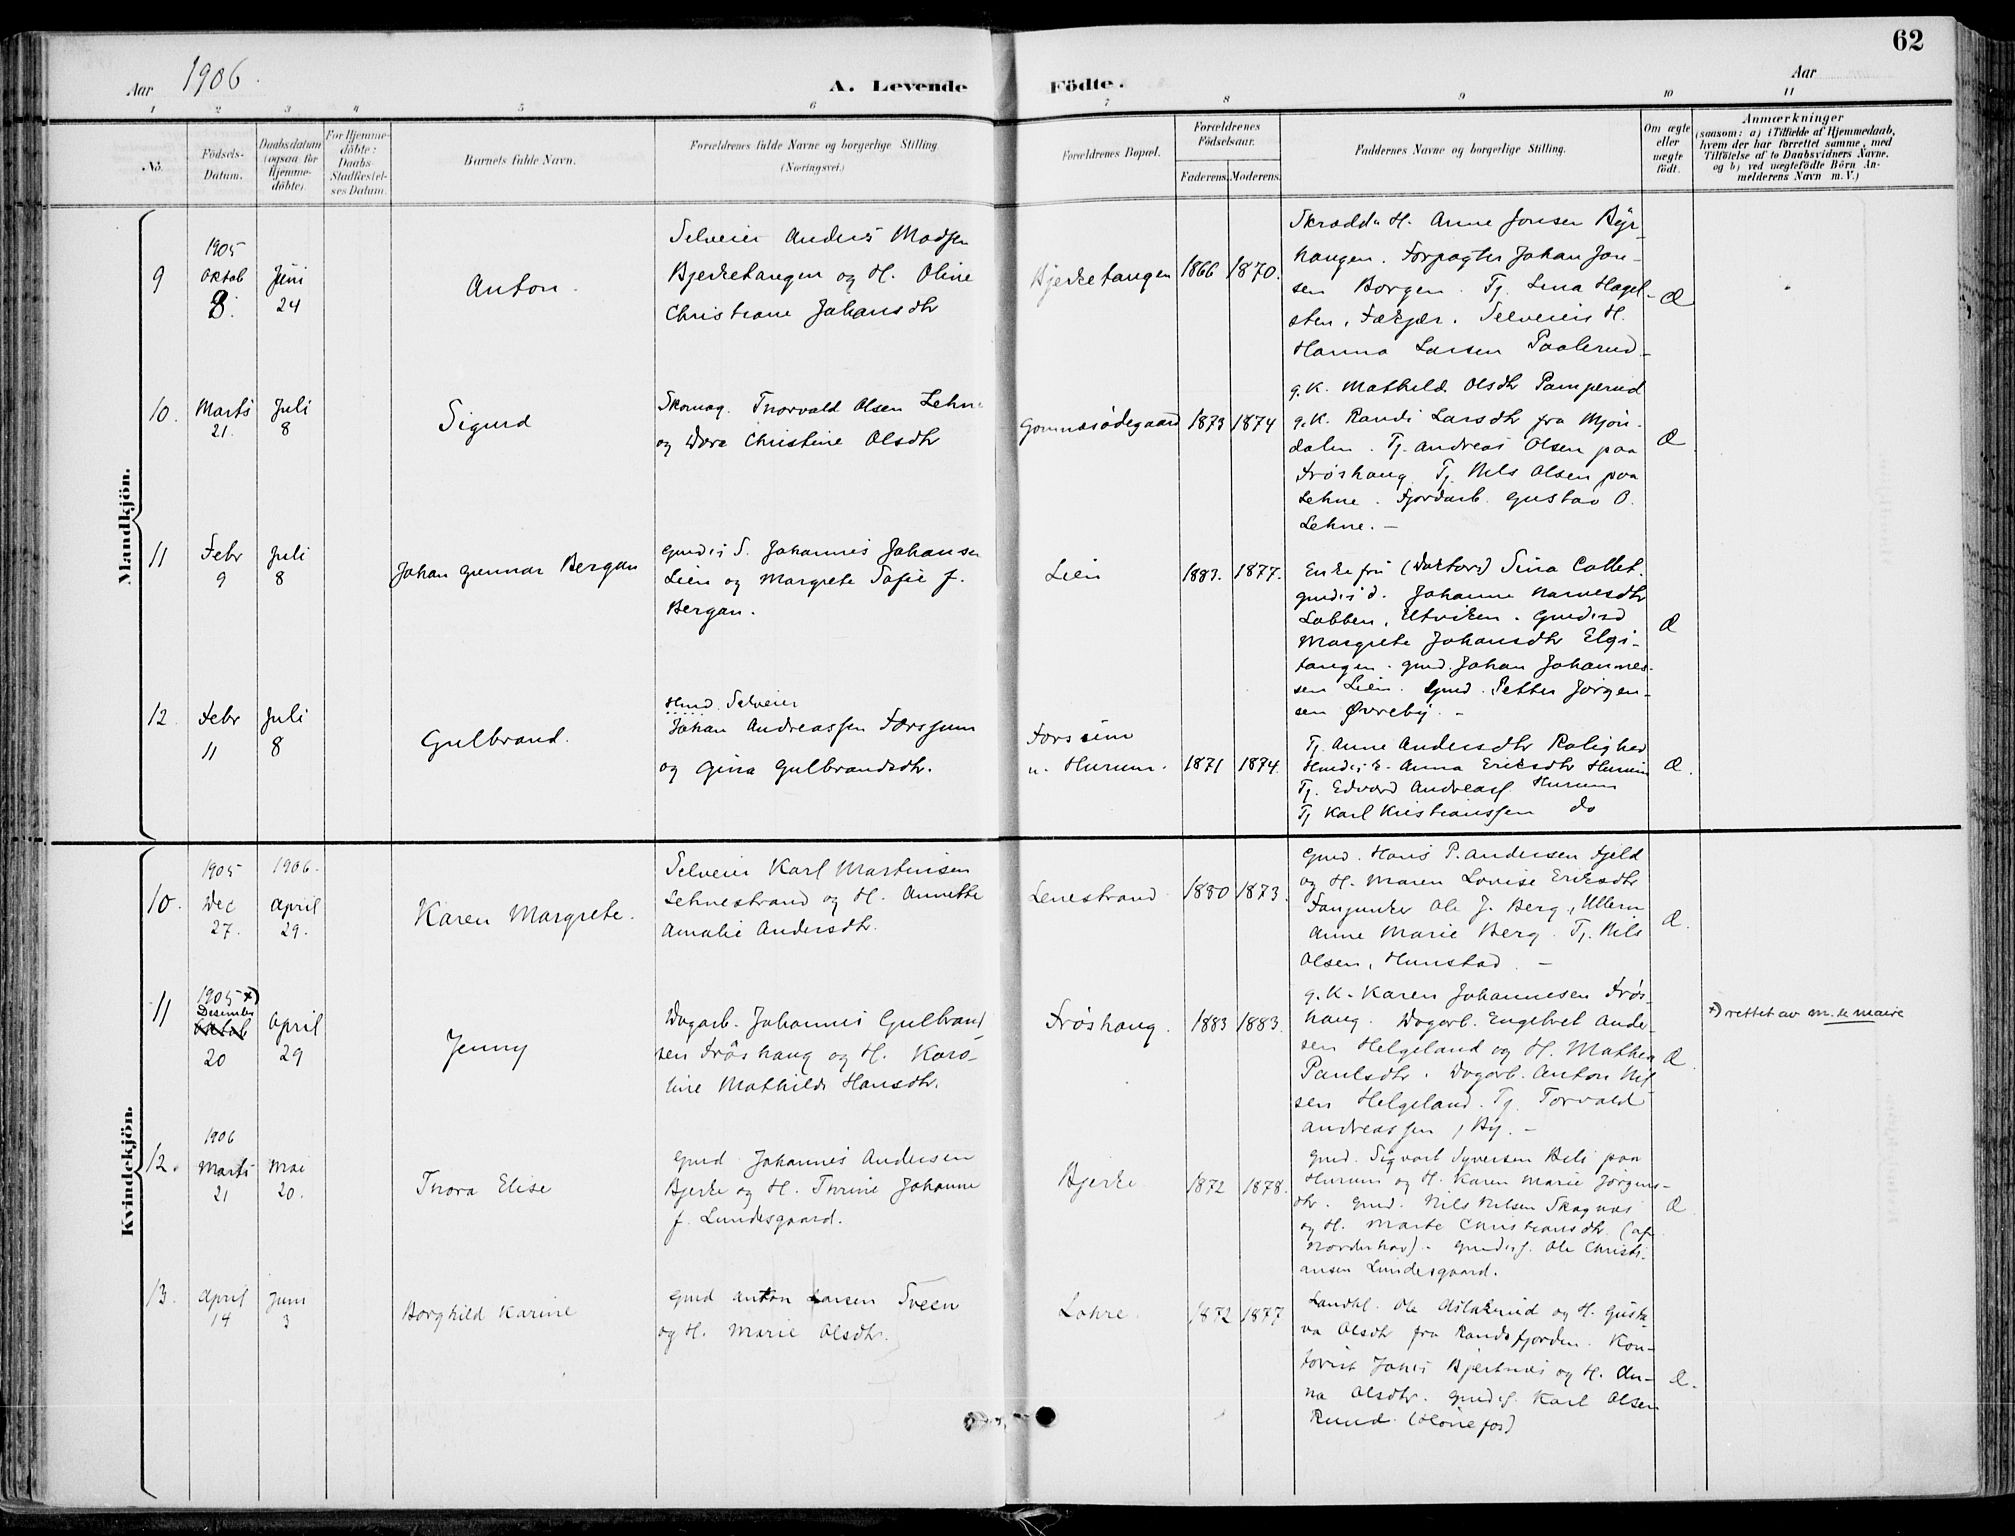 62
Aar 1906.
A. Levende Födte.
Aar
1 2 3 4 5 6 7 8 9 10 11
No.
Födsels-Datum.
Daabsdatum (ogsaa for Hjemmedöbte).
For Hjemmedöbte: Daabs-Stadfæstelses Datum.
Barnets fulde Navn.
Forældrenes fulde Navne og borgerlige Stilling
(Næringsvei.)
Forældrenes Bopæl.
Forældrenes Födselsaar.
Faderens. Moderens.
Faddernes Navne og borgerlige Stilling.
Om ægte eller uægte födt.
Anmærkninger
(saasom: a) i Tilfælde af Hjemmedaab,
hvem der har forrettet samme, med
Tilföielse af to Daabsvidners Navne,
og b) ved uægtefödte Börn An-
melderens Navn m. V.)
Mandkjön.
9
1905
Oktob
8.
Juni
24
Anton.
Selveier Anders Madsen
Bjerketangen og H. Oline
Christiane Johansdtr
Bjerketangen
1866 1870.
Skrædd. H. Anne Jonsen Byr-
haugen. Forpagter Johan Jon-
sen Borgen. Tj. Lina Hagel-
sten, Fækjær. Selveiers H.
Hanna Larsen Paalerud
Æ
10.
Marts
21.
Juli
8
Sigurd
Skomag. Thorvald Olsen Lehne
og Dora Christine Olsdtr
Gomnæsødegaard
1873 1874
g.K. Mathild. Olsdtr Pamperud
g.K. Randi Larsdtr fra Mjøn-
dalen. Tj. Andreas Olsen paa
Frøshaug Tj. Nils Olsen paa
Lehne. Fjordarb. Gustav O.
Lehne. –
Æ
11
Febr
9
Juli
8
Johan Gunnar Bergan
Gmdss S. Johannes Johansen
Lien og Margrete Sofie f.
Bergan.
Lien
1883. 1877.
Enkefru (Doktor) Sina Collet.
gmds d. Johanne Narvesdtr
Lobben, Utviken. Gmdsd
Margrete Johansdtr Elgs-
tangen. gmd. Johan Johannes-
sen Lien. Gmd. Petter Jørgen-
sen Øvreby. –
Æ
12.
Febr
11
Juli
8
Gulbrand.
Hmd. Selveier
Johan Andreassen Forssum
og Gina Gulbrandsdtr.
Forssum
u. Hurum.
1871 1874.
Tj. Anne Andersdtr Rolighed
Hmds E. Anna Eriksdtr Hurum
Tj. Edvard Andreass Hurum
Tj Karl Kristianssen do
Æ.
Kvindekjön.
10.
1905
Dec
27.
1906.
April
29.
Karen Margrete.
Selveier Karl Martinsen
Lehnestrand og H. Annette
Amalie Andersdtr.
Lenestrand
1880 1873.
Gmd. Hans P. Andersen Fjeld
og H. Maren Lovise Eriksdtr
Fanejunker Ole J. Berg, Ullern
Anne Marie Berg. Tj. Nils
Olsen, Hunstad. –
Æ.
11
1905 +)
Desember
Oktob
20
April
29
Jenny
Dagarb. Johannes Gulbrand
sen Frøshaug og H. Karo-
line Mathilde Hansdtr.
Frøshaug.
1883 1883.
g.K. Karen Johannesen Frøs-
haug. Dagarb. Engebret Ander-
sen Helgeland og H. Mathea
Paulsdtr. Dagarb. Anton Nil
sen Helgeland. Tj. Torvald
Andreassen, By. –
Æ.
+) rettet av m. le maire
12.
1906
Marts
21
Mai
20.
Thora Elise
Gmd Johannes Andersen
Bjerke og H. Thrine Johanne
f. Lundesgaard.
Bjerke
1872 1878.
Gmd. Sigvart Syversen Bili paa
Hurum og H. Karen Marie Jørgens-
dtr. Gmd. Nils Nilsen Skagnæs
og H. Marte Christiansdtr (af
Norderhov). Gmds s. Ole Christi-
ansen Lundesgaard.
Æ.
13.
April
14
Juni
3
Borghild Karine
Gmd Anton Larsen Sveen
og H. Marie Olsdtr.
Lohre.
1872 1877
Landhl. Ole Aslakrud og H. Gusta-
va Olsdtr fra Randsfjorden. Kon-
torist Jonas Bjertnæs og H. An-
na Olsdtr. Gmds s. Karl Olsen
Ruud. (Hønefos)
Æ.